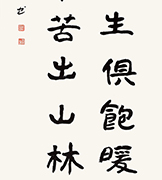 生俱飽暖
苦出山林